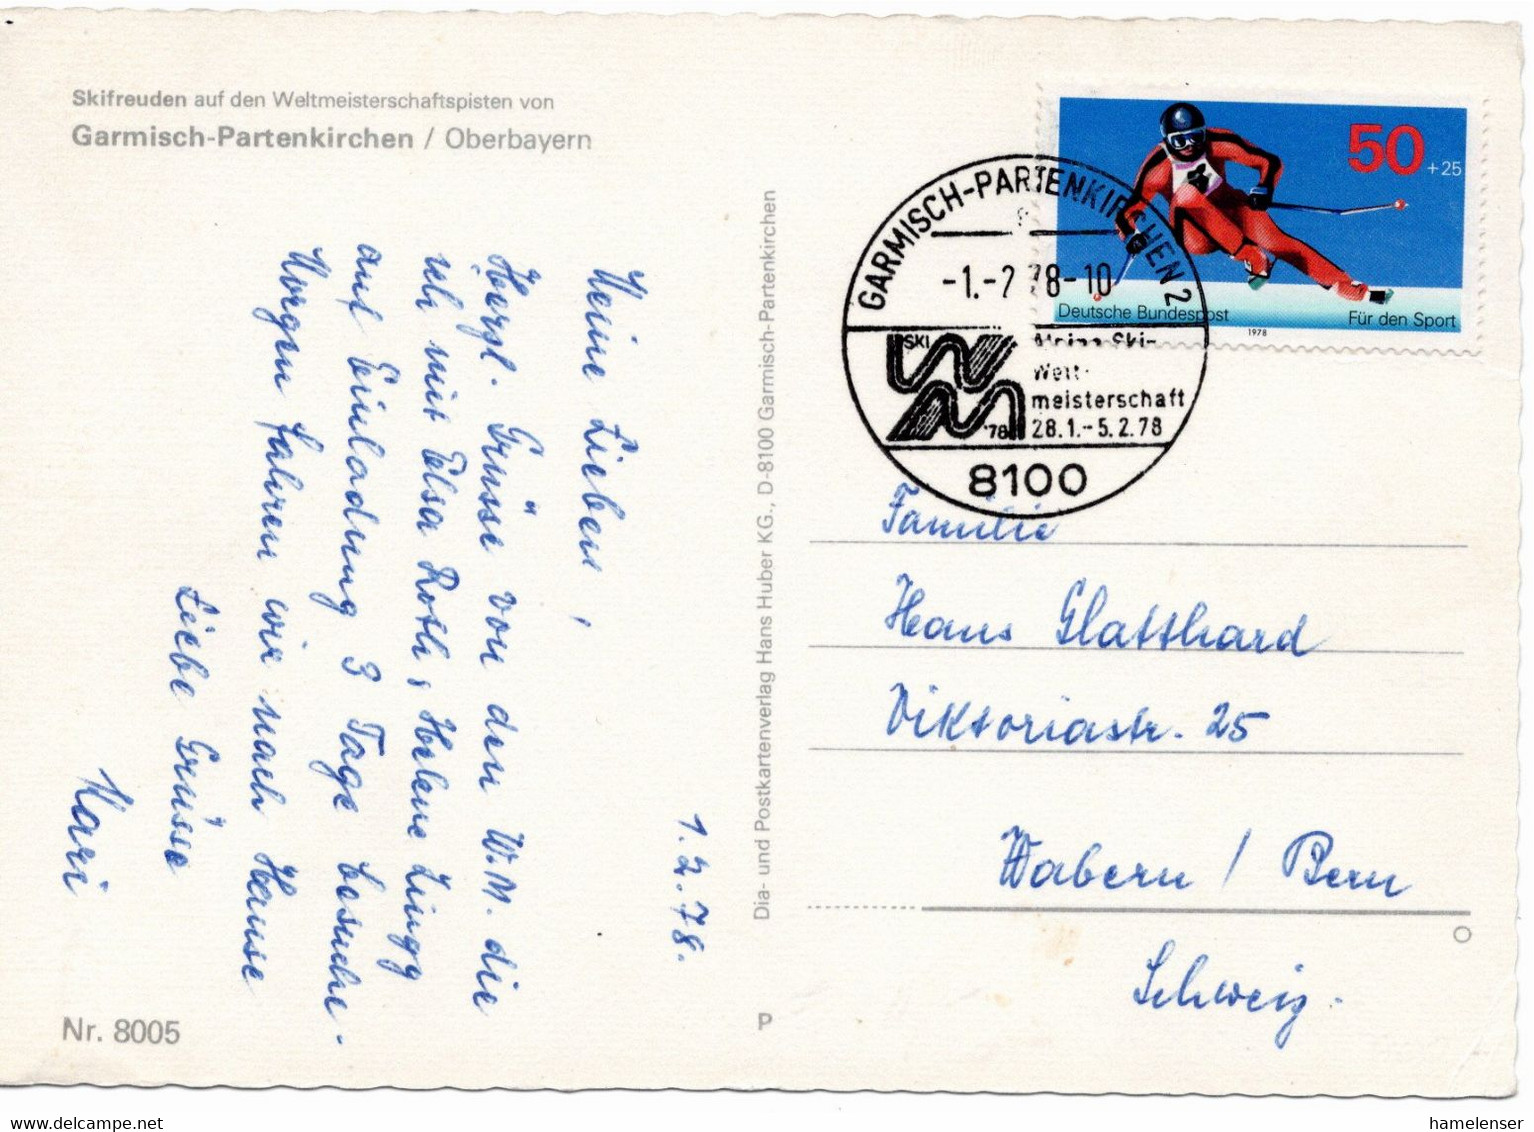 Skifreuden auf den Weltmeisterschaftspisten von
Garmisch-Partenkirchen / Oberbayern
1.2.78.
Meine Lieben!
Herzl. Grüsse von der W.M. die
ich mit Elsa Roth, Helene Zingg
auf Einladung 3 Tage besuche.
Morgen fahren wir nach Hause
Liebe Grüsse
Mari
Nr. 8005
Dia- und Postkartenverlag Hans Huber KG., D-8100 Garmisch-Partenkirchen
P
50 +25
Deutsche Bundespost
1978
Für den Sport
GARMISCH-PARTENKIRCHEN 2
-1.-2 78-10
SKI WM '78
Alpine Ski-
Welt-
meisterschaft
28.1.-5.2.78
8100
Familie
Hans Glatthard
Viktoriastr. 25
Wabern / Bern
Schweiz.
hamelenser www.delcampe.net